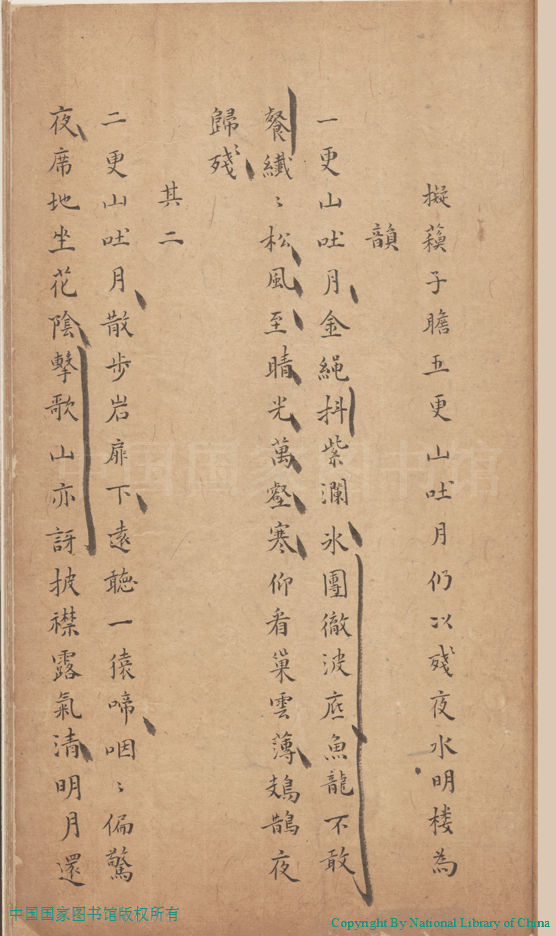 擬蘓子瞻五更山吐月仍以殘夜水明楼為
韻
一更山吐月金繩抖紫瀾氷團徹波底魚龍不敢
餐纖〻松風至晴光萬壑寒仰看巢雲薄鳷鵲夜
歸殘
其二
二更山吐月散步岩扉下遠聽一猿啼咽〻偏驚
夜席地坐花陰擊歌山亦訝披襟露氣清明月還
中国国家图书馆版权所有
Copyright By National Library of China